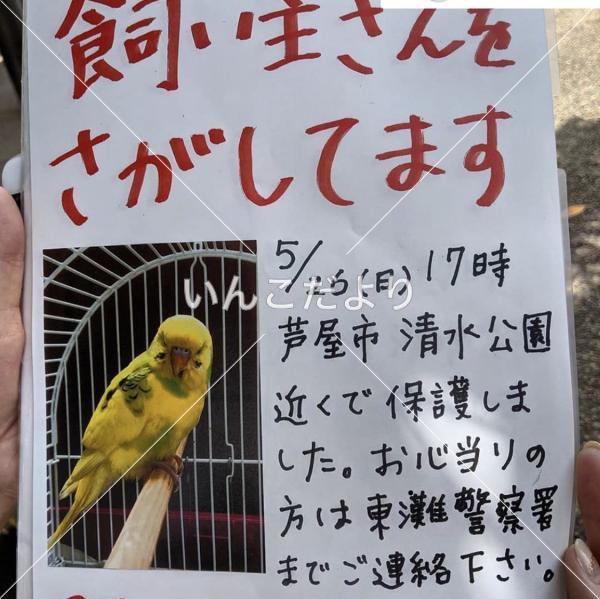 飼い主さんを
さがしてます
5/26(日)17時
いんこだより
芦屋市 清水公園
近くで保護しま
した。お心当りの
方は東灘警察署
までご連絡下さい。